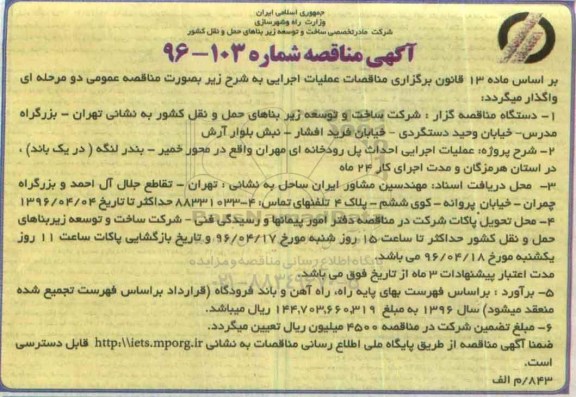 جمهوری اسلامی ایران
وزارت راه وشهرسازی
شرکت مادرتخصصی ساخت و توسعه زیر بناهای حمل و نقل کشور
آگهی مناقصه شماره ۱۰۳-۹۶
بر اساس ماده ۱۳ قانون برگزاری مناقصات عملیات اجرایی به شرح زیر بصورت مناقصه عمومی دو مرحله ای
واگذار میگردد:
۱- دستگاه مناقصه گزار : شرکت ساخت و توسعه زیر بناهای حمل و نقل کشور به نشانی تهران - بزرگراه
مدرس- خیابان وحید دستگردی - خیابان فرید افشار - نبش بلوار آرش
۲- شرح پروژه: عملیات اجرایی احداث پل رودخانه ای مهران واقع در محور خمیر - بندر لنگه ( در یک باند) ،
در استان هرمزگان و مدت اجرای کار ۲۴ ماه
۳- محل دریافت اسناد: مهندسین مشاور ایران ساحل به نشانی : تهران - تقاطع جلال آل احمد و بزرگراه
چمران - خیابان پروانه - کوی ششم - پلاک ۴ تلفنهای تماس: ۴-۸۸۳۳۱۰۳۳ حداکثر تا تاریخ ۱۳۹۶/۰۴/۰۴
۴- محل تحویل پاکات شرکت در مناقصه دفتر امور پیمانها و رسیدگی فنی - شرکت ساخت و توسعه زیربناهای
حمل و نقل کشور حداکثر تا ساعت ۱۵ روز شنبه مورخ ۹۶/۰۴/۱۷ و تاریخ بازگشایی پاکات ساعت ۱۱ روز
یکشنبه مورخ ۹۶/۰۴/۱۸ می باشد.
مدت اعتبار پیشنهادات ۳ ماه از تاریخ فوق می باشد.
۵- برآورد : براساس فهرست بهای پایه راه، راه آهن و باند فرودگاه (قرارداد براساس فهرست تجمیع شده
منعقد میشود) سال ۱۳۹۶ به مبلغ ۱۴۴,۷۰۳,۶۶۰,۳۱۹ ریال میباشد.
۶- مبلغ تضمین شرکت در مناقصه ۴۵۰۰ میلیون ریال تعیین میگردد.
ضمنا آگهی مناقصه از طریق پایگاه ملی اطلاع رسانی مناقصات به نشانی http:\\iets.mporg.ir قابل دسترسی
است.
۸۴۳/م الف